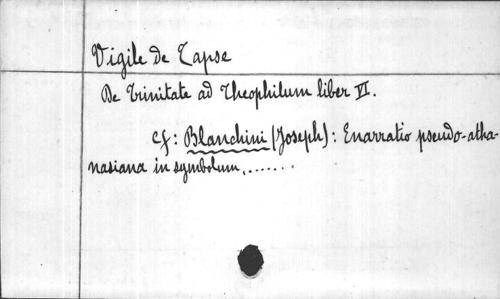 Vigile de Tapse
De Trinitate ad Theophilum liber VI.
cf: Blanchini (Joseph): Enarratio pseudo-atha-
nasiana in symbolum, . . . . . .